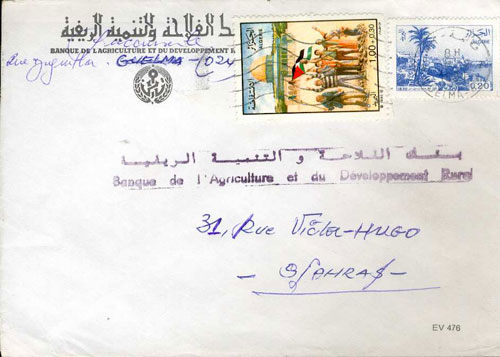 ك الفلاحة والتنمية الريفية
BANQUE DE L'AGRICULTURE ET DU DEVELOPPEMENT R
GUELMA - 024
ALGERIE
1.00+0.30
8H
0.20
بنك الفلاحة و التنمية الريفية
Banque de l'Agriculture et du Développement Rural
31, Rue Victor-Hugo
S/AHRAS
EV 476